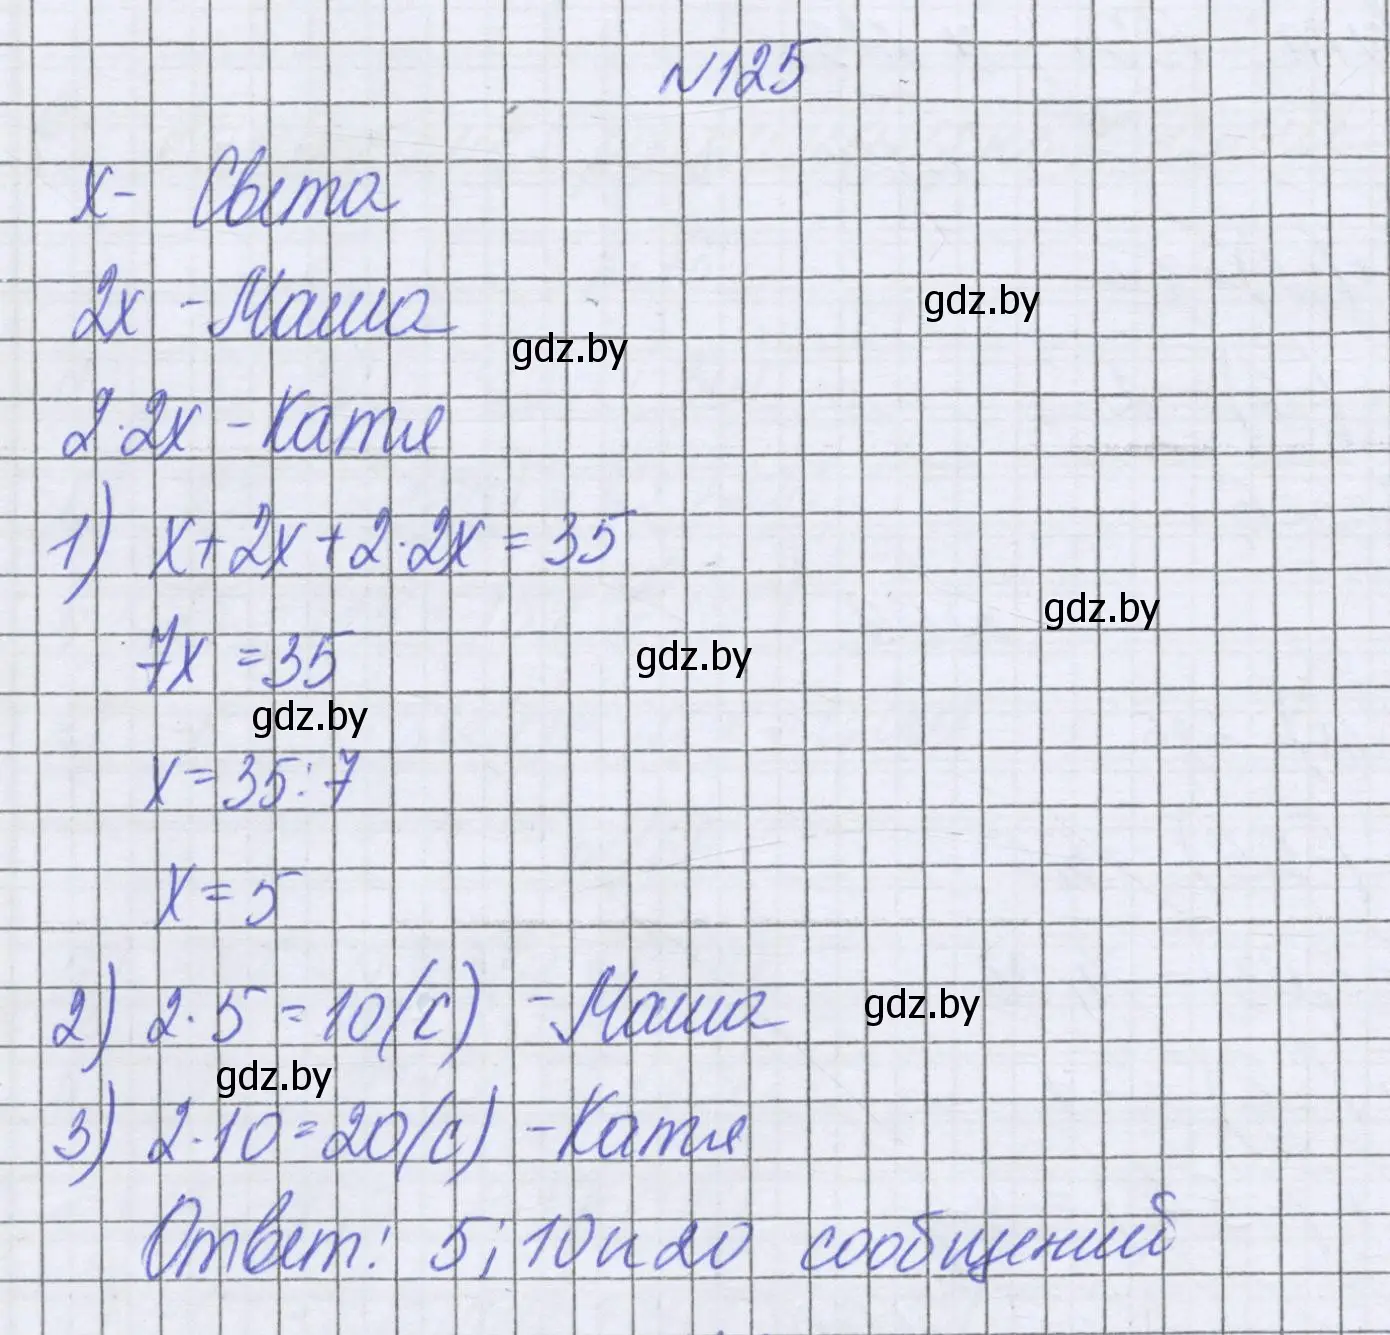 №125
x - Света
gdz.by
2x - Маша
gdz.by
2·2x - Катя
1) x+2x+2·2x=35
gdz.by
7x=35
gdz.by
gdz.by
x=35:7
x=5
2) 2·5=10(с) - Маша
gdz.by
gdz.by
3) 2·10=20(с) - Катя
Ответ: 5; 10 и 20 сообщений